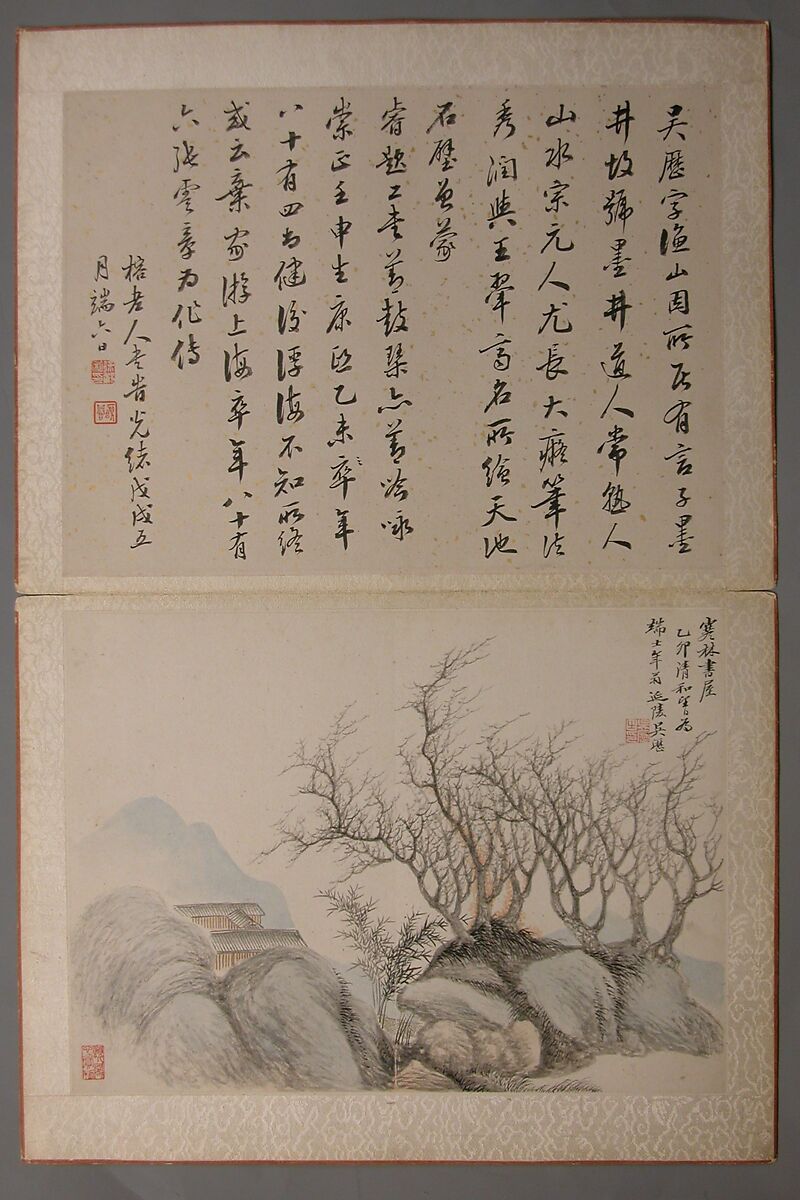 吴歷字漁山因所居有言子墨
井故號墨井道人常熟人
山水宗元人尤長大癡筆法
秀潤與王翬齊名所繪天池
石壁曾蒙
睿題工書善鼓琴亦善吟咏
崇正壬申生康熙乙未卒年
八十有四尚健後浮海不知所終
或云棄家游上海卒年八十有
六張雲章為作傳
老人書皆光緒戊戌五
月端六日
寒林書屋
乙卯清和望日為
端士年翁延陵吴歷